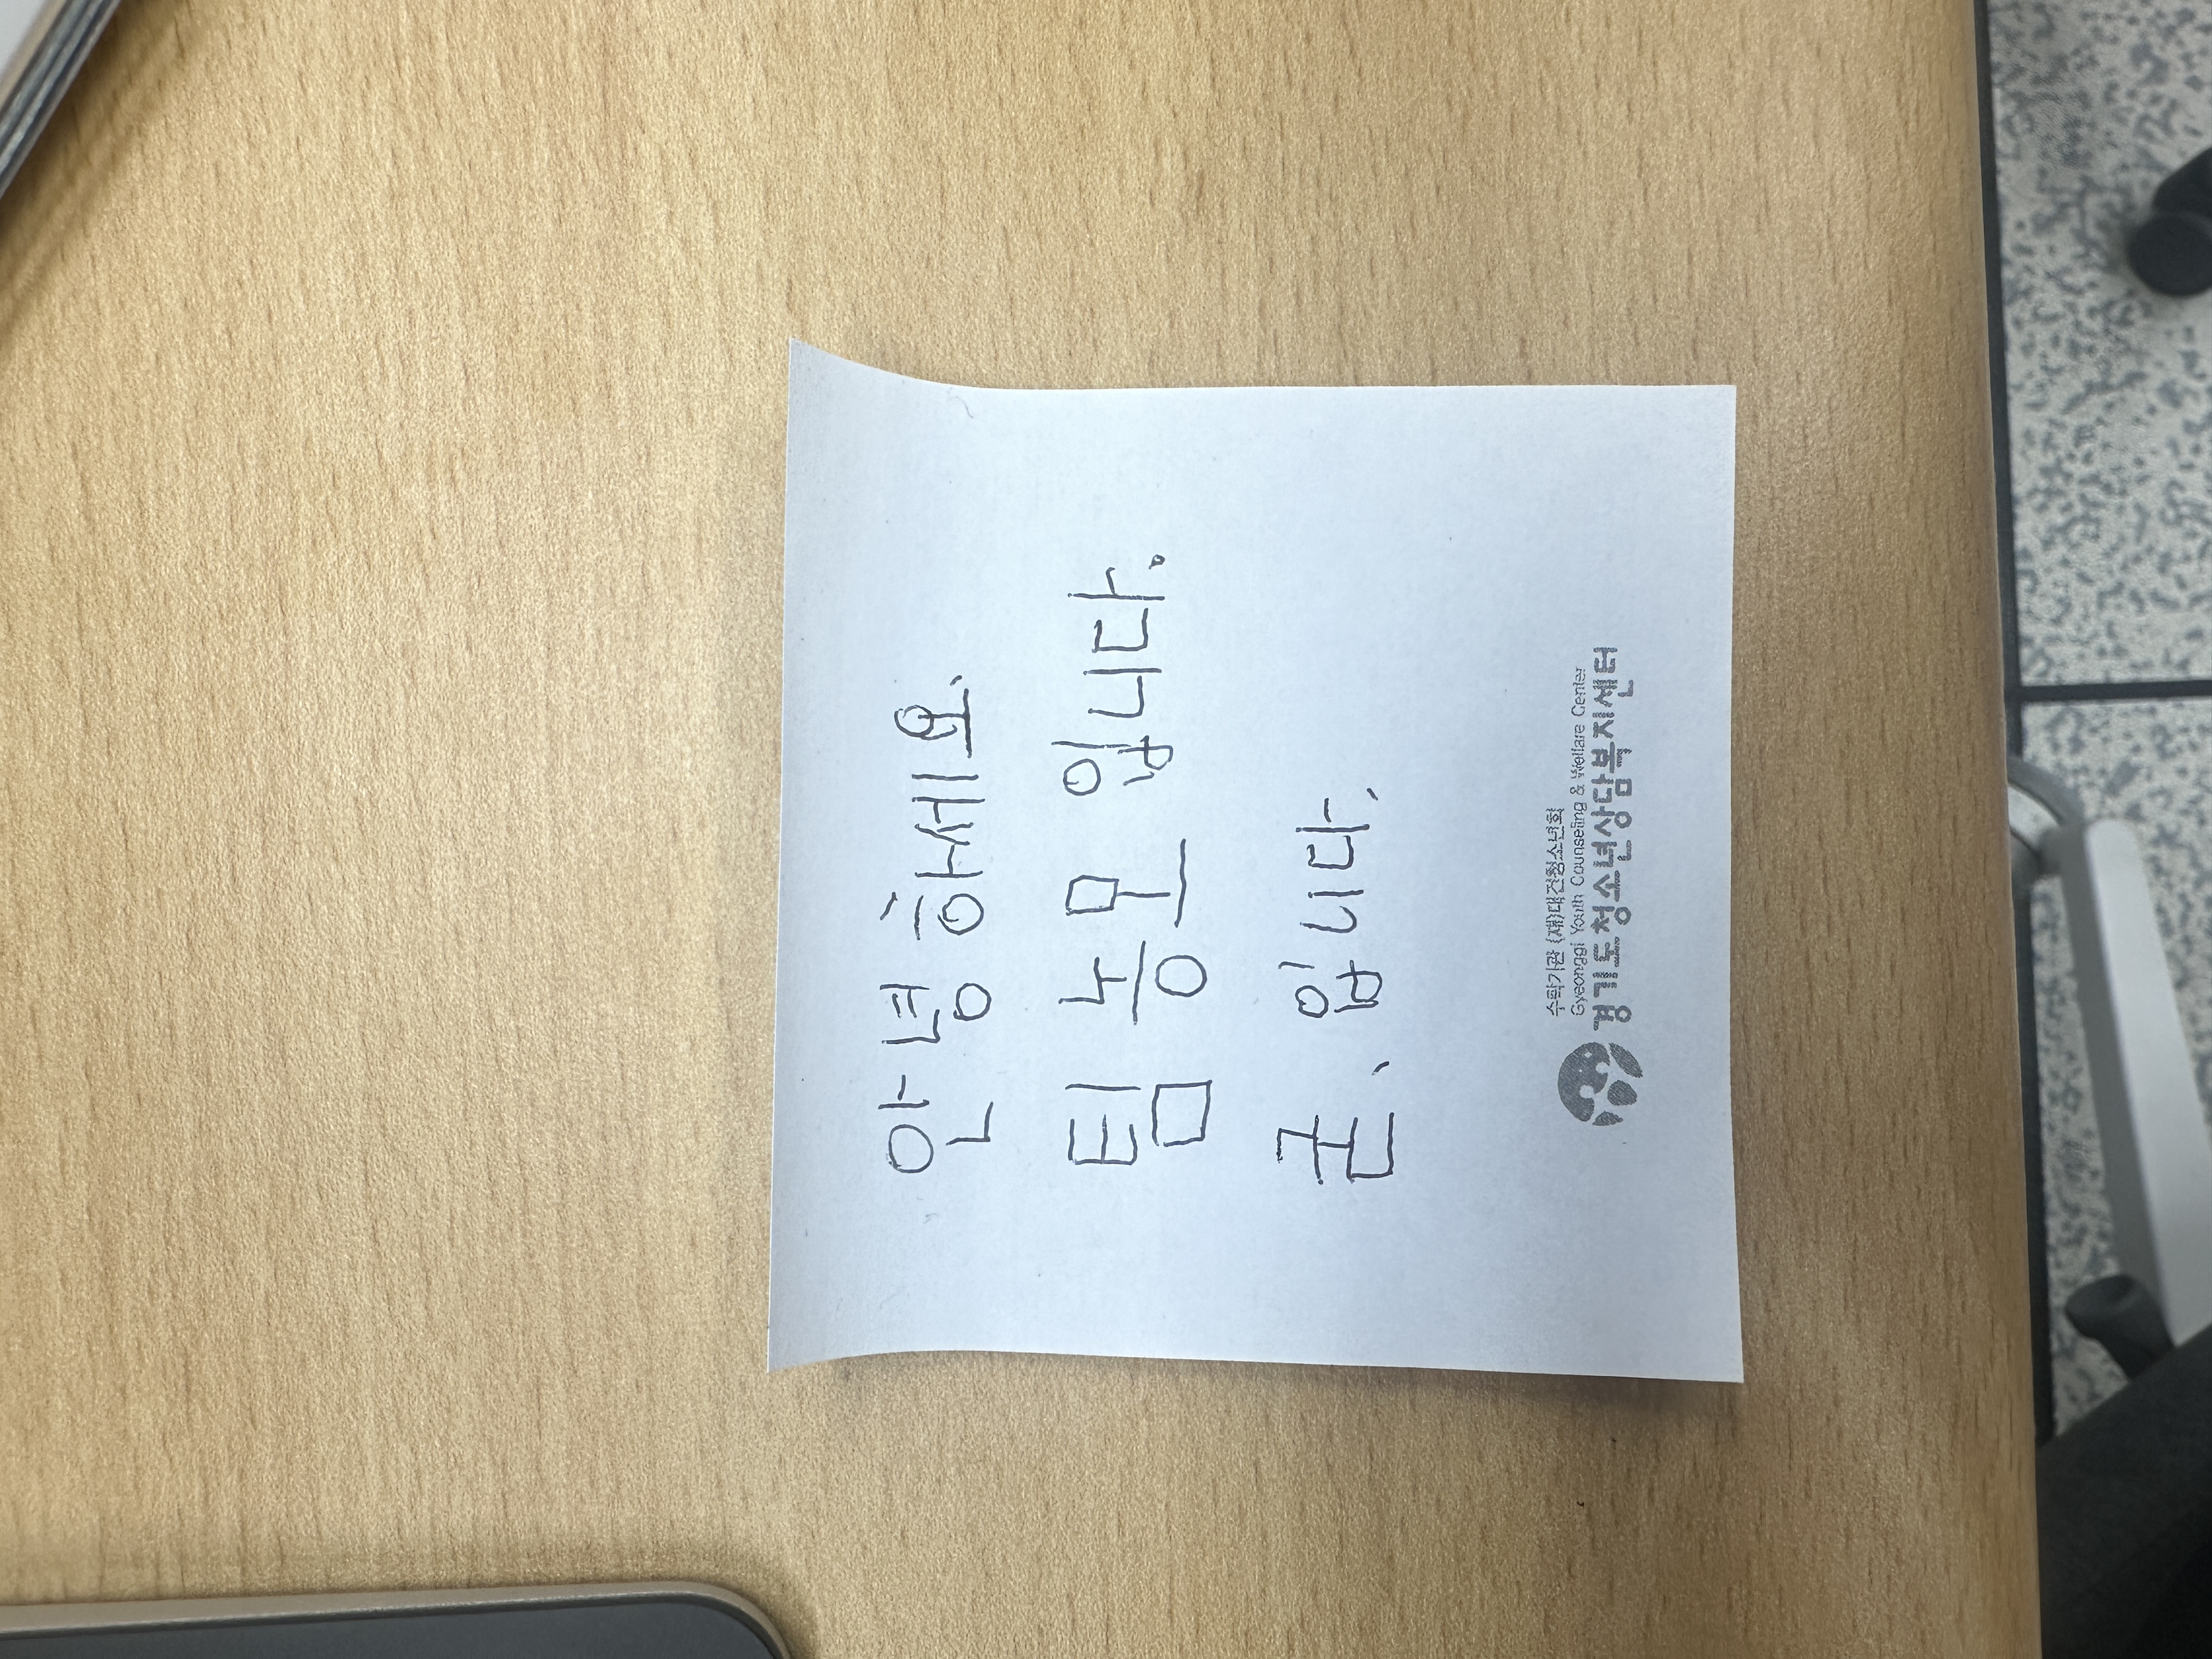 안녕하세요.
팀 능모 입니다.
굳. 입니다.
수탁기관 (재)대건청소년회
Gyeonggi Youth Counseling & Welfare Center
경기도청소년상담복지센터